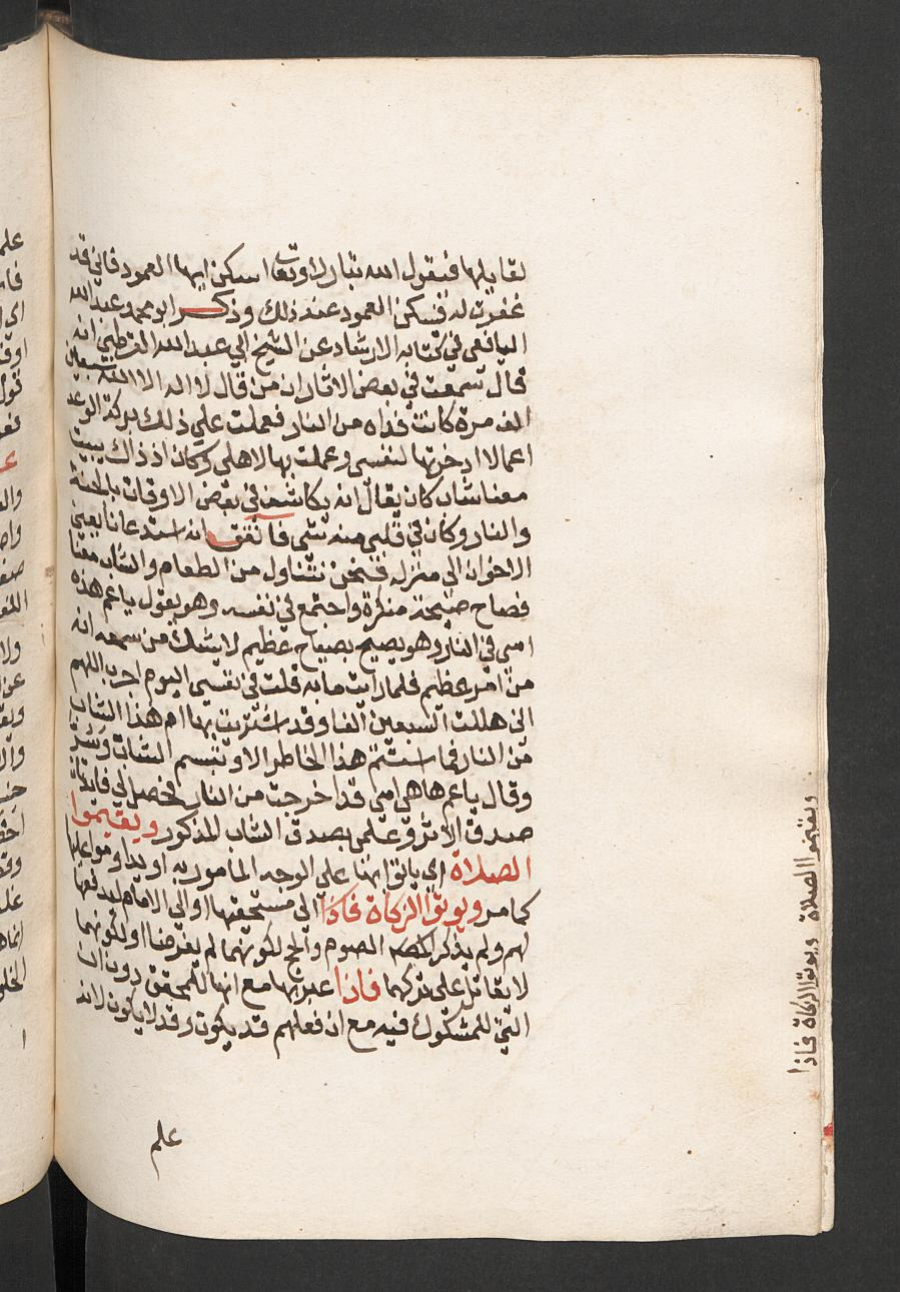 لقايلها فيقول الله تبارك وتعا اسكن ايها العمود فاني قد
غفرت له فسكن العمود عند ذلك وذكر ابو محمد عبد الله
اليافعي في كتابه الارشاد عن الشيخ ابي عبد الله القرطبي انه
قال سمعت في بعض الاثار ان من قال لا اله الا الله سبعين
الف مرة كانت فداه من النار فعملت علي ذلك بركة الوعد
اعمالا ادخرتها لنفسي وعملت بها لاهلي وكان اذ ذاك يبيت
معنا شاب كان يقال انه يكاشف في بعض الاوقات بالجنة
والنار وكان في قلبي منه شي فاتفق انه استدعانا بعض
الاخوان الي منزله فنحن نتناول من الطعام والشاب معنا
فصاح صيحة منكرة واجتمع في نفسه وهو يقول يا عم هذه
امي في النار وهو يصيح بصياح عظيم لا يشك من سمعه انه
من امر عظيم فلما رايت ما به قلت في نفسي اليوم اجرب اللهم
اني هللت السبعين الفا وقد اشتريت بها ام هذا الشاب
من النار فما استتم هذا الخاطر الا وتبسم الشاب وسر
وقال يا عم ها هي امي قد اخرجت من النار فحصل لي فايدتان
صدق الاثر وعلمي بصدق الشاب المذكور ويقيموا
الصلاة اي ياتوا بها علي الوجه المامور به او يداوموا عليها
كما مر ويوتوا الزكاة فاذا الي مستحقها او الي الامام ليدفعها
لهم ولم يذكر المصه الصوم والحج لكونهما لم يفرضا او لكونهما
لا يقاتل علي تركهما فاذا عبر بها مع انها للمحقق دون ان
التي للمشكوك فيه مع ان فعلهم قد يكون وقد لا يكون لانه
علم
ويقيموا الصلاة ويوتوا الزكاة فاذا